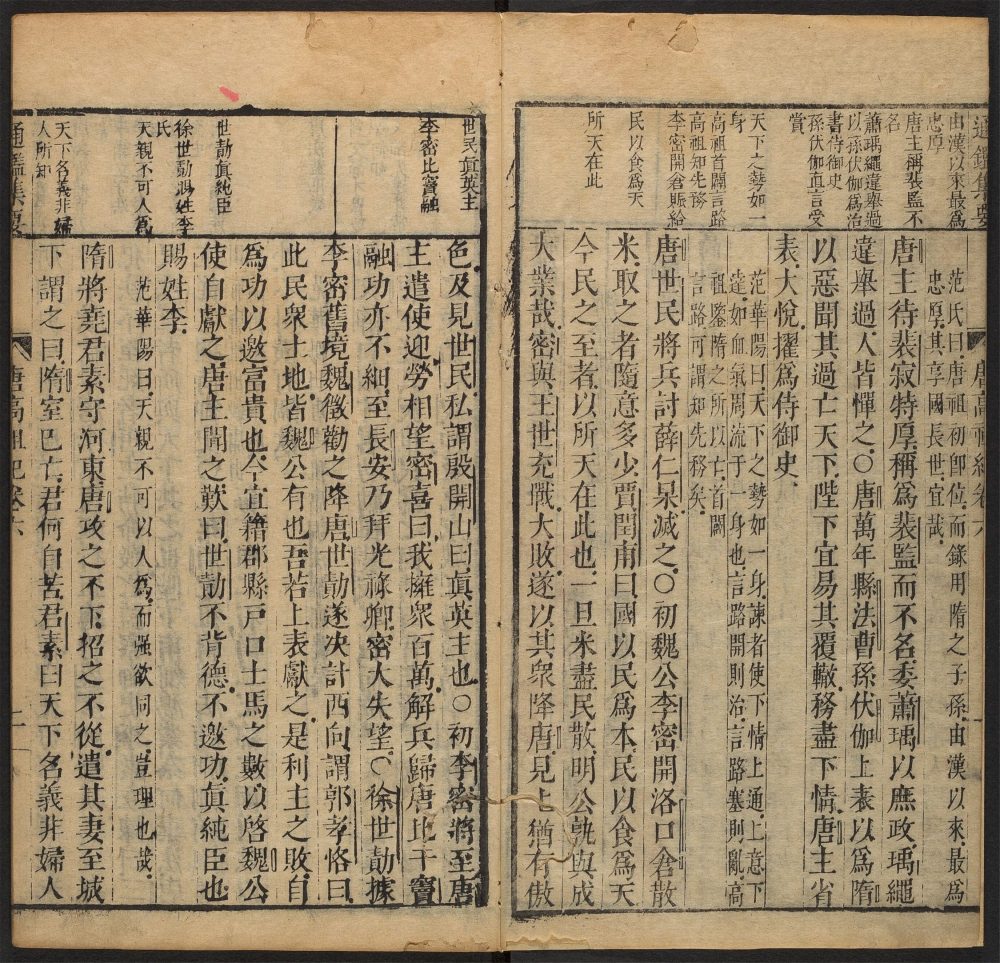 通鑑集要
由漢以來最爲
忠厚
唐主稱裴監不
名
蕭瑀繩違舉過
以孫伏伽爲治
書侍御史
孫伏伽直言受
賞
天下之勢如一
身
高祖首開言路
高祖知先務
李密開倉賑給
民以食爲天
所天在此
唐高祖紀卷六
范氏曰唐祖初卽位而錄用隋之子孫由漢以來最爲
忠厚其享國長世宜哉
唐主待裴寂特厚稱爲裴監而不名委蕭瑀以庶政瑀繩
違舉過人皆憚之〇唐萬年縣法曹孫伏伽上表以爲隋
以惡聞其過亡天下陛下宜易其覆轍務盡下情唐主省
表大悅擢爲侍御史
范華陽曰天下之勢如一身諫者使下情上通上意下
達如血氣周流于一身也言路開則治言路塞則亂高
祖鑒隋之所以亡首闢
言路可謂知先務矣
唐世民將兵討薛仁杲滅之〇初魏公李密開洛口倉散
米取之者隨意多少賈閏甫曰國以民爲本民以食爲天
今民之至者以所天在此也一旦米盡民散明公孰與成
大業哉密與王世充戰大敗遂以其衆降唐見上猶有傲
世民眞英主
李密比竇融
世勣眞純臣
徐世勣賜姓李
氏
天親不可人爲
天下名義非婦
人所知
色及見世民私謂殷開山曰眞英主也〇初李密將至唐
主遣使迎勞相望密喜曰我擁衆百萬解兵歸唐比于竇
融功亦不細至長安乃拜光祿卿密大失望〇徐世勣據
李密舊境魏徵勸之降唐世勣遂决計西向謂郭孝恪曰
此民衆士地皆魏公有也吾若上表獻之是利主之敗自
爲功以邀富貴也今宜籍郡縣戸口士馬之數以啓魏公
使自獻之唐主聞之歎曰世勣不背德不邀功眞純臣也
賜姓李
范華陽曰天親不可以人爲而强欲同之豈理也哉
隋將堯君素守河東唐攻之不下招之不從遣其妻至城
下謂之曰隋室已亡君何自苦君素曰天下名義非婦人
通鑑集要
唐高祖紀卷六
二